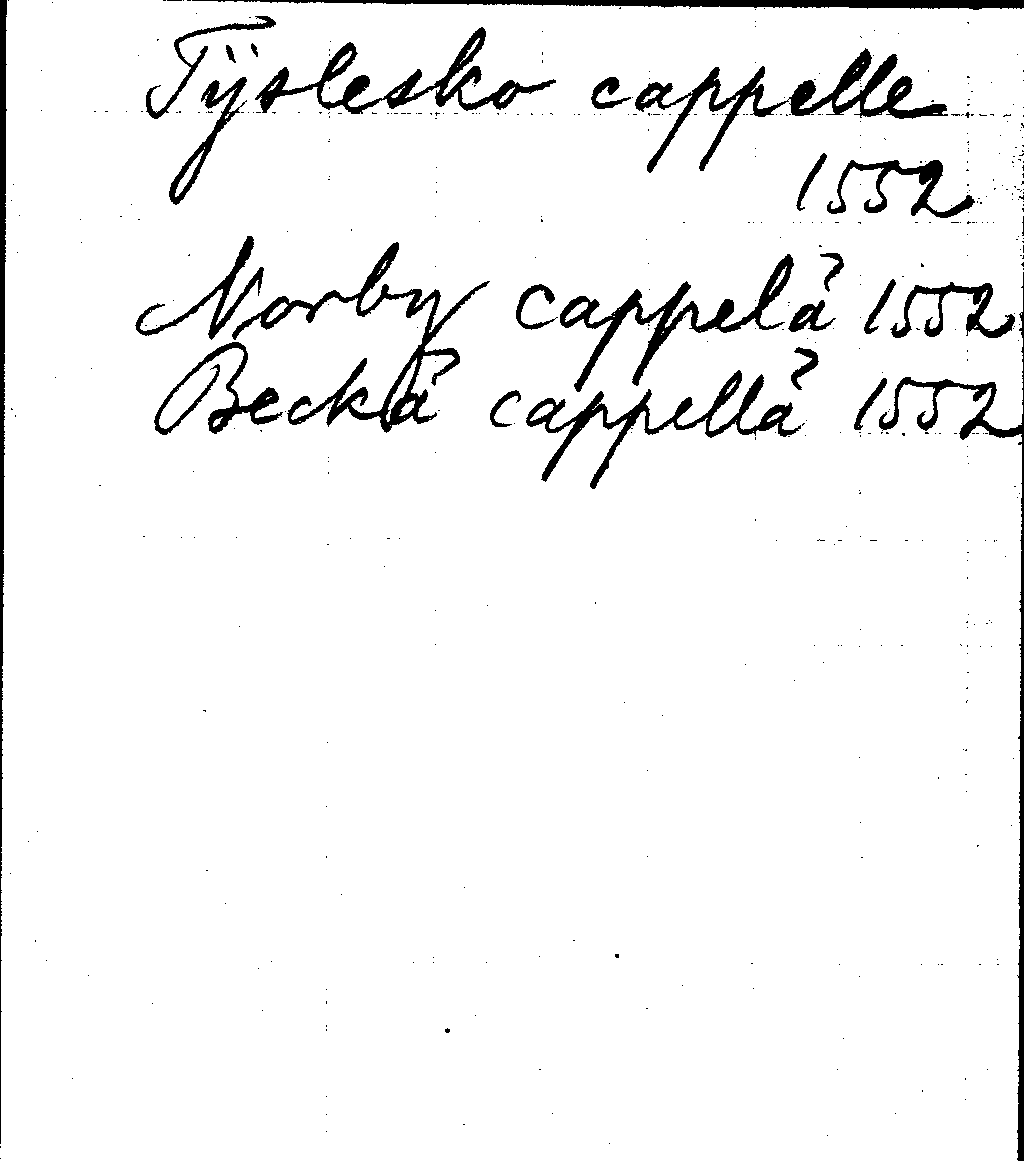 Tÿslesko cappelle
1552
Norby cappelå 1552
Beckå cappellå 1552